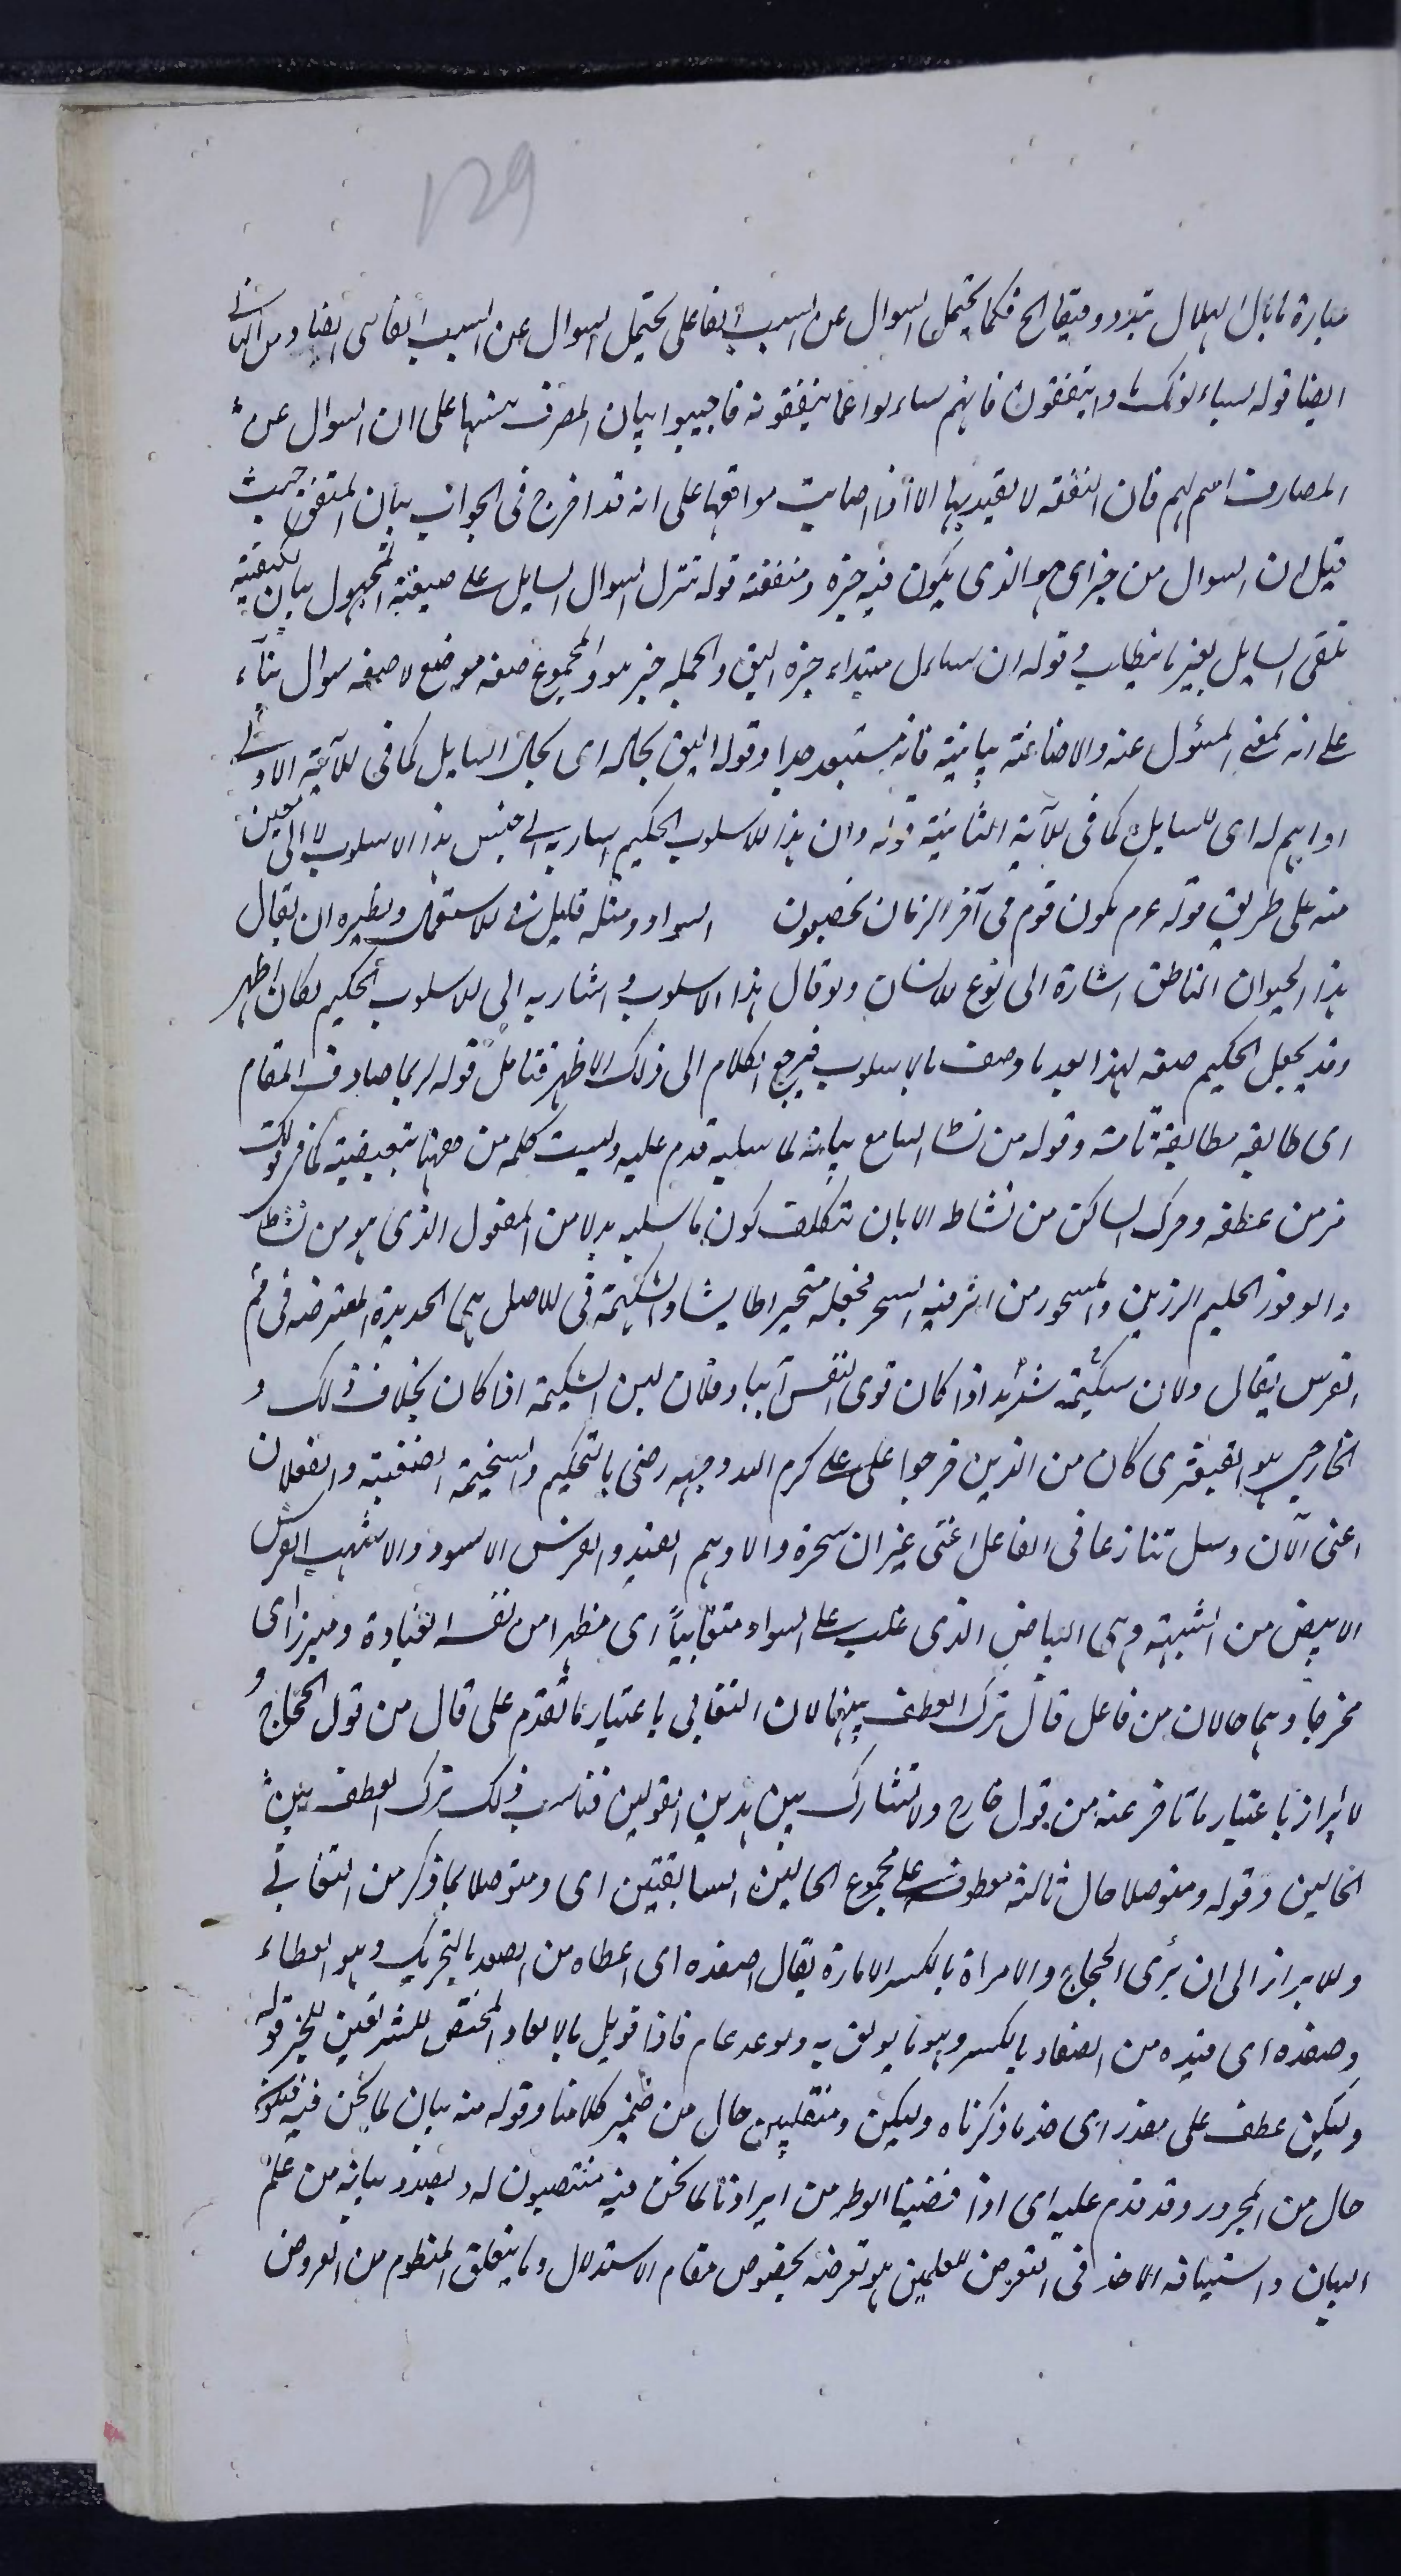 129
عبارة ما بال الهلال يبدو دقيقا الخ فكما يحتمل السوال عن السبب الفاعلى يحتمل السوال عن السبب الغائى ايضا ومن الثانى
ايضا قوله يساءلونك ماذا ينفقون فانهم ساءلوا عما ينفقونه فاجيبوا ببيان المصرف تنبيها على ان السوال عن
المصارف اهم لهم فان النفقة لا يعتد بها الا اذا اصابت مواقعها على انه قد اخرج فى الجواب بيان المنفق حيث
قيل ان السوال من خير اى هو الذى يكون فيه خيره ومنفعته قوله تنزل السوال السايل على صيغة المجهول بيان لكيفية
تلقى السايل بغير ما يتطلب وقوله ان ساءل مبتداء خبره اليق والجملة خبر هو والمجموع صفة موضع لا صفة سوال بناء
على انه بمعنى المسئول عنه والاضافة بيانية فانه مستبعد جدا وقوله اليق بحاله اى بحال السايل كما فى الآية الاولى
او اهم له اى للسايل كما فى الآية الثانية قوله وان هذا الاسلوب الحكيم اشار به الى جنس هذا الاسلوب لا الى معين
منه على طريق قوله عم يكون قوم فى آخر الزمان يخضبون السواد ومثله قليل فى الاستعمال ونظيره ان يقال
هذا الحيوان الناطق اشارة الى نوع الانسان ولو قال هذا الاسلوب واشار به الى الاسلوب الحكيم لكان اظهر
وقد يجعل الحكيم صفة لهذا بعد ما وصف بالاسلوب فيرجع الكلام الى ذلك الاظهر فتامل قوله لربما صادف المقام
اى طابقه مطابقة تامة وقوله من نشاط السامع بيانه لما سلبه قدم عليه وليست كلمة من ههنا تبعيضية كما فى قولك
هز من عطفه وحرك الساكن من نشاطه الا بان يتكلف كون ما سلبه بدلا من المفعول الذى هو من نشاط
والوقور الحليم الرزين والمسحور من اثر فيه السحر فجعله متحيرا طايشا والشكيمة فى الاصل هى الحديدة المعترضة فى فم
الفرس يقال فلان شكيمته شديد اذا كان قوى النفس آبيا وفلان لين الشكيمة اذا كان بخلاف ذلك و
الخارجى هو القبعثرى كان من الذين خرجوا على على كرم الله وجهه رضى بالتحكيم والسخيمة الضغينة والفعلان
اعنى الآن وسل تنازعا فى الفاعل اعنى غير ان سحره والادهم القيد والفرس الاسود والاشهب الفرس
الابيض من الشبهة وهى البياض الذى غلب على السواد متغابياً اى مظهرا من نفسه الغباوة ومبرزا اى
مخرجا وهما حالان من فاعل قال ترك العطف بينهما لان التغابى باعتبار ما تقدم على قال من قول الحجاج و
لا ابراز باعتبار ما تأخر عنه من قول خارج ولا تشارك بين هذين القولين فناسب ذلك ترك العطف بين
الحالين وقوله ومتوصلا حال ثالثة معطوف على مجموع الحالين السابقتين اى ومتوصلا بما ذكر من التغابى
والابراز الى ان يرى الحجاج والامراة بالكسر الامارة يقال اصفده اى اعطاه من الصفد بالتحريك وهو العطاء
وصفده اى قيده من الصفاد بالكسر وهو ما يوثق به والوعد عام فاذا قوبل بالايعاد المختص للشر تعين للخير قوله
وليكن عطف على مقدر اى خذ ما ذكرناه وليكن ومنقلبين حال من ضمير كلامنا وقوله منه بيان لما نحن فيه فيكون
حال من المجرور وقد قدم عليه اى اذا قضينا الوطر من ايرادنا لما نحن فيه منتصبون له وبصدد بيانه من علم
البيان واستينافه الاخذ فى التعرض للعلمين هو تعرضه بخصوص مقام الاستدلال وما يتعلق المنظوم من العروض